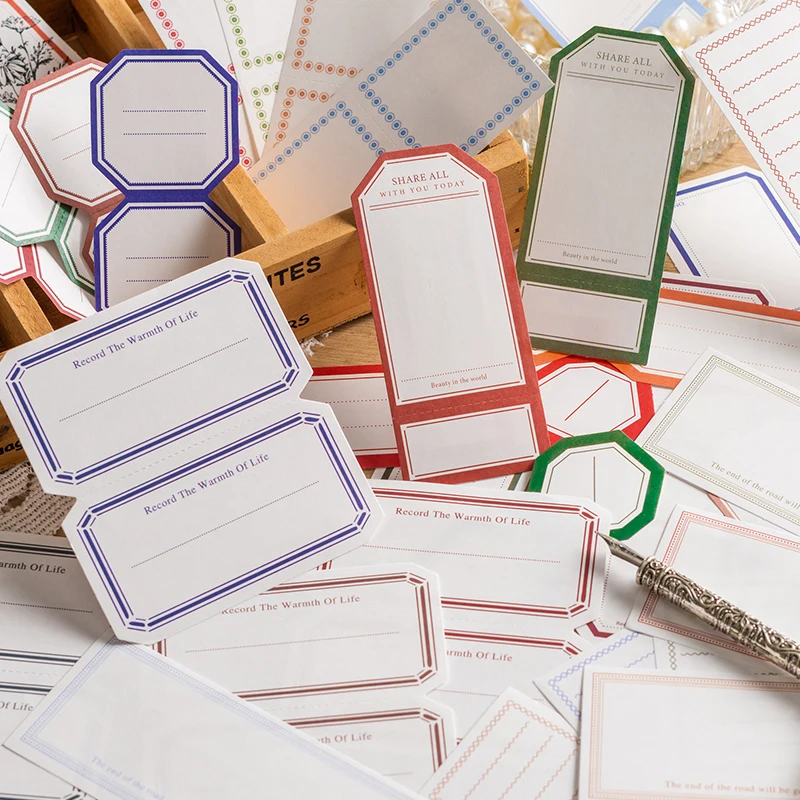 SHARE ALL
WITH YOU TODAY
Beauty in the world
SHARE ALL
WITH YOU TODAY
Beauty in the world
Record The Warmth Of Life
Record The Warmth Of Life
Record The Warmth Of Life
The end of the road will
Warmth Of Life
Record The Warmth Of Life
rmth Of Life
Of Life
rmth Of Life
The end of the road
The end of the road will be